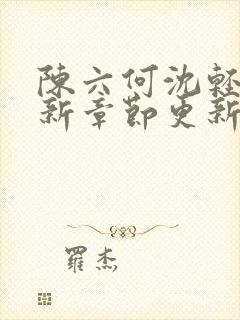 陳六何沈輕
新章節更新
羅杰